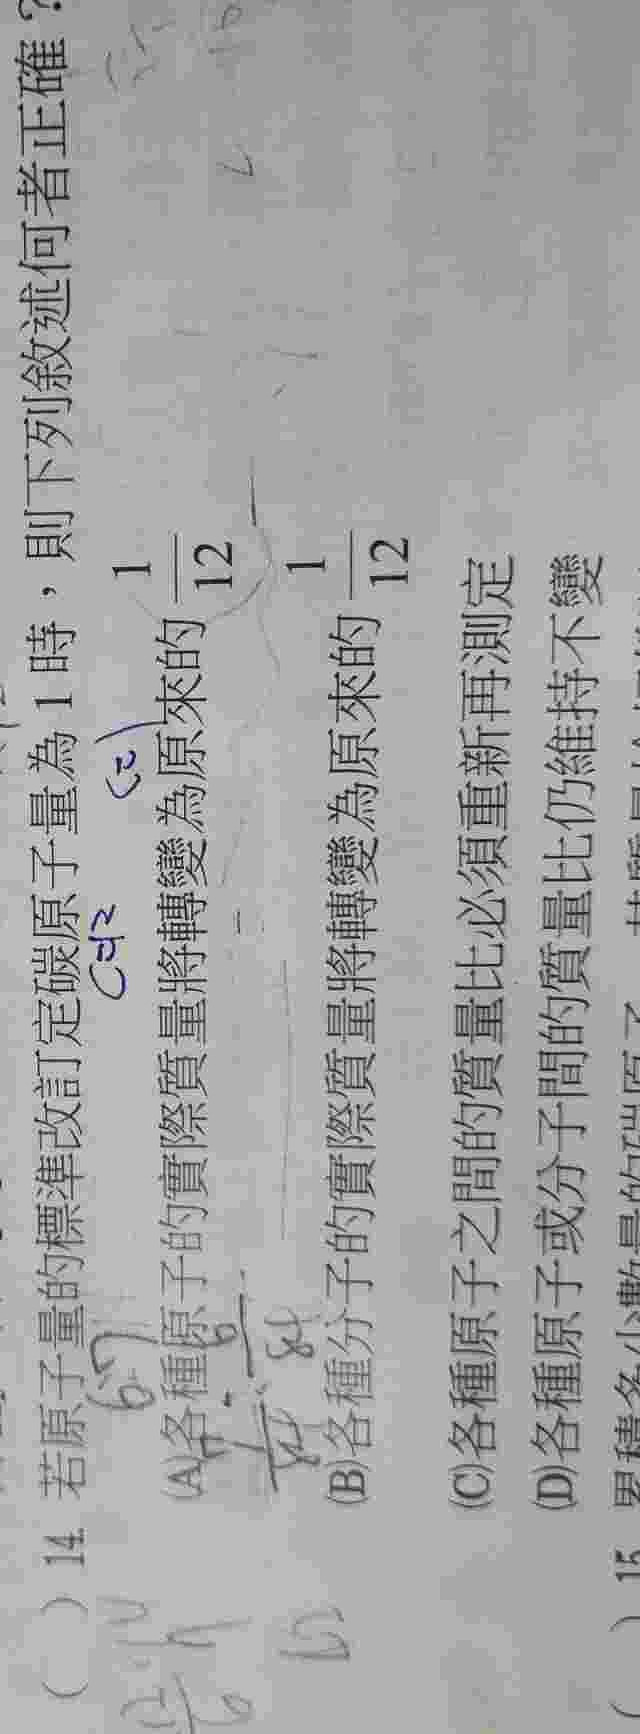 ( ) 14. 若原子量的標準改訂定碳原子量為 1 時，則下列敘述何者正確？
C=12 C=1
(A)各種原子的實際質量將轉變為原來的 1/12
(B)各種分子的實際質量將轉變為原來的 1/12
(C)各種原子之間的質量比必須重新再測定
(D)各種原子或分子間的質量比仍維持不變
( ) 15.